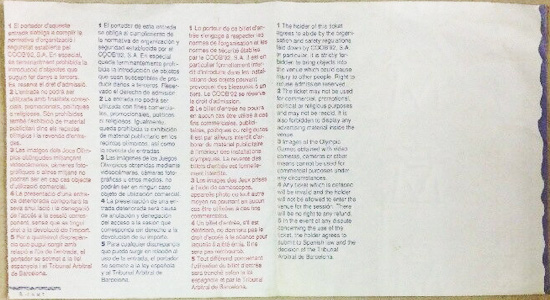 1 El portador d'aquesta
entrada s'obliga a complir la
normativa d'organització i
seguretat establerta pel
COOB'92, S.A. En especial,
és terminantment prohibida la
introducció d'objectes que
puguin fer danys a tercers.
Es reserva el dret d'admissió.
2 L'entrada no podrà ser
utilitzada amb finalitats comer-
cials, promocionals, polítiques
o religioses. Són prohibides
també l'exhibició de material
publicitari dins els recintes
esportius i la revenda d'entra-
des.
3 Les imatges dels Jocs Olím-
pics obtingudes mitjançant
videocàmeres, càmeres foto-
gràfiques o altres mitjans no
podran ser en cap cas objecte
d'utilització comercial.
4 La presentació d'una entra-
da deteriorada comportarà la
seva anul·lació i la denegació
de l'accés a la sessió corres-
ponent, sense que es tingui
dret a la devolució de l'import.
5 Per a qualsevol discrepàn-
cia que pugui sorgir amb
relació a l'ús de l'entrada, el
portador se sotmet a la llei
espanyola i al Tribunal Arbitral
de Barcelona.
1 El portador de esta entrada
se obliga al cumplimiento de
la normativa de organización y
seguridad establecida por el
COOB'92, S.A. En especial,
queda terminantemente prohi-
bida la introducción de objetos
que sean susceptibles de pro-
ducir daños a terceros. Reser-
vado el derecho de admisión.
2 La entrada no podrá ser
utilizada con fines comercia-
les, promocionales, políticos
o religiosos. Igualmente,
queda prohibida la exhibición
de material publicitario en los
recintos deportivos, así como
la reventa de entradas.
3 Las imágenes de los Juegos
Olímpicos obtenidas mediante
videocámaras, cámaras foto-
gráficas u otros medios, no
podrán ser en ningún caso
objeto de utilización comercial.
4 La presentación de una en-
trada deteriorada será causa
de anulación y denegación
del acceso a la sesión que
corresponda sin derecho a la
devolución de su importe.
5 Para cualquier discrepancia
que pueda surgir en relación al
uso de la entrada, el portador
se somete a la ley española
y al Tribunal Arbitral de
Barcelona.
1 Le porteur de ce billet d'en-
trée s'engage à respecter les
normes de l'organisation et les
normes de sécurité établies
par le COOB'92, S.A. Il est en
particulier formellement inter-
dit d'introduire dans les instal-
lations des objets pouvant
provoquer des blessures à un
tiers. Le COOB'92 se réserve
le droit d'admission.
2 Le billet d'entrée ne pourra
en aucun cas être utilisé à des
fins commerciales, public-
itaires, politiques ou religieuses.
Il est par ailleurs interdit d'ar-
borer du matériel publicitaire
à l'intérieur des installations
olympiques. La revente des
billets d'entrée est formelle-
ment interdite.
3 Les images des Jeux prises
à l'aide de caméscopes,
appareils photo ou tout autre
moyen ne pourront en aucun
cas être utilisées à des fins
commerciales.
4 Un billet d'entrée, s'il est
détérioré, ne donnera pas le
droit d'accès à la séance pour
laquelle il a été émis. Il ne
sera pas remboursé.
5 Tout différend concernant
l'utilisation du billet d'entrée
sera tranché selon la loi
espagnole et par le Tribunal
Arbitral de Barcelona.
1 The holder of this ticket
agrees to abide by the organi-
sation and safety regulations
laid down by COOB'92, S.A.
In particular, it is strictly for-
bidden to bring objects into
the venue which could cause
injury to other people. Right to
refuse admission reserved.
2 The ticket may not be used
for commercial, promotional,
political or religious purposes
and may not be resold. It is
also forbidden to display any
advertising material inside the
venue.
3 Images of the Olympic
Games obtained with video
cameras, cameras or other
means cannot be used for
commercial purposes under
any circumstances.
4 Any ticket which is defaced
will be invalid and the holder
will not be allowed to enter the
venue for the session. There
will be no right to any refund.
5 In the event of any dispute
concerning the use of the
ticket, the holder agrees to
submit to Spanish law and the
decision of the Tribunal Arbitral
de Barcelona.